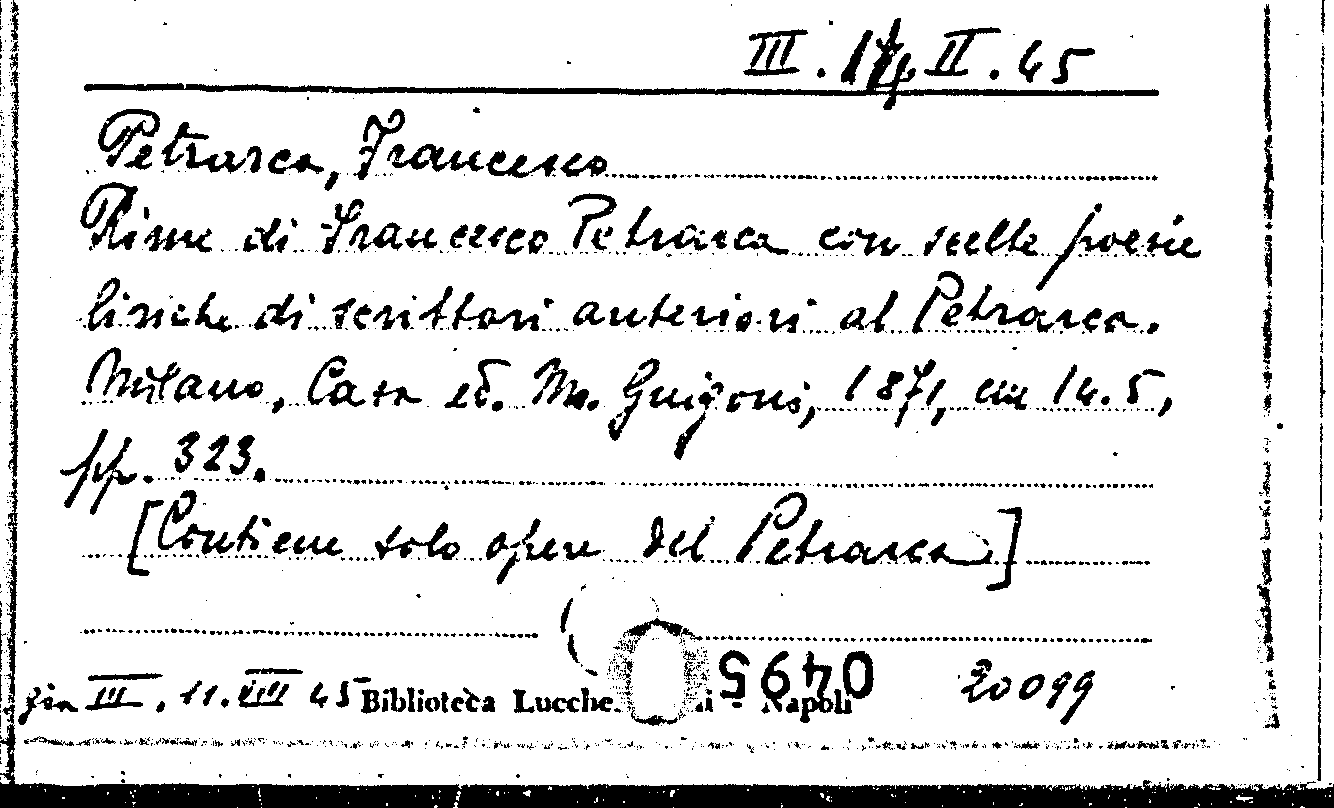 III. 14. II. 45
Petrarca, Francesco
Rime di Francesco Petrarca con scelte poesie
liriche di scrittori anteriori al Petrarca.
Milano, Casa ed. M. Guigoni, 1871, cm 14.5,
pp. 323.
[Contiene solo opere del Petrarca]
0495
già III. 11. VIII 45 Biblioteca Lucche i - Napoli 20099